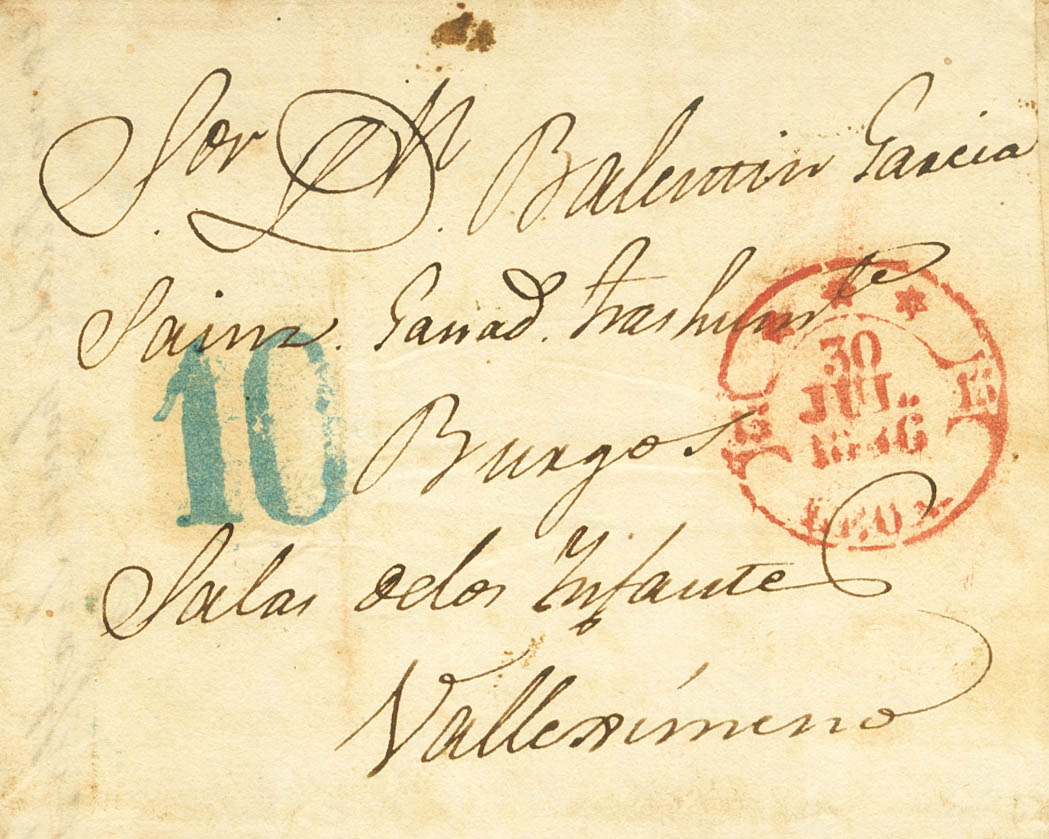 Sor. D. N. Balentin Garcia
Sainz. Ganad. trashumte
10
30
JUL.
1846
LEON
Burgos
Salas de los Infantes
Vallexímeno